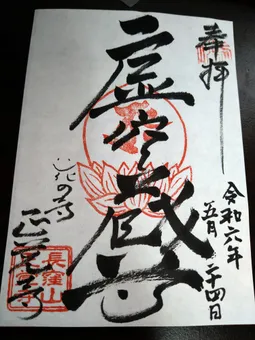 奉拝
令和六年
五月二十四日
虚空蔵尊
花の寺
正覚寺
長窪山